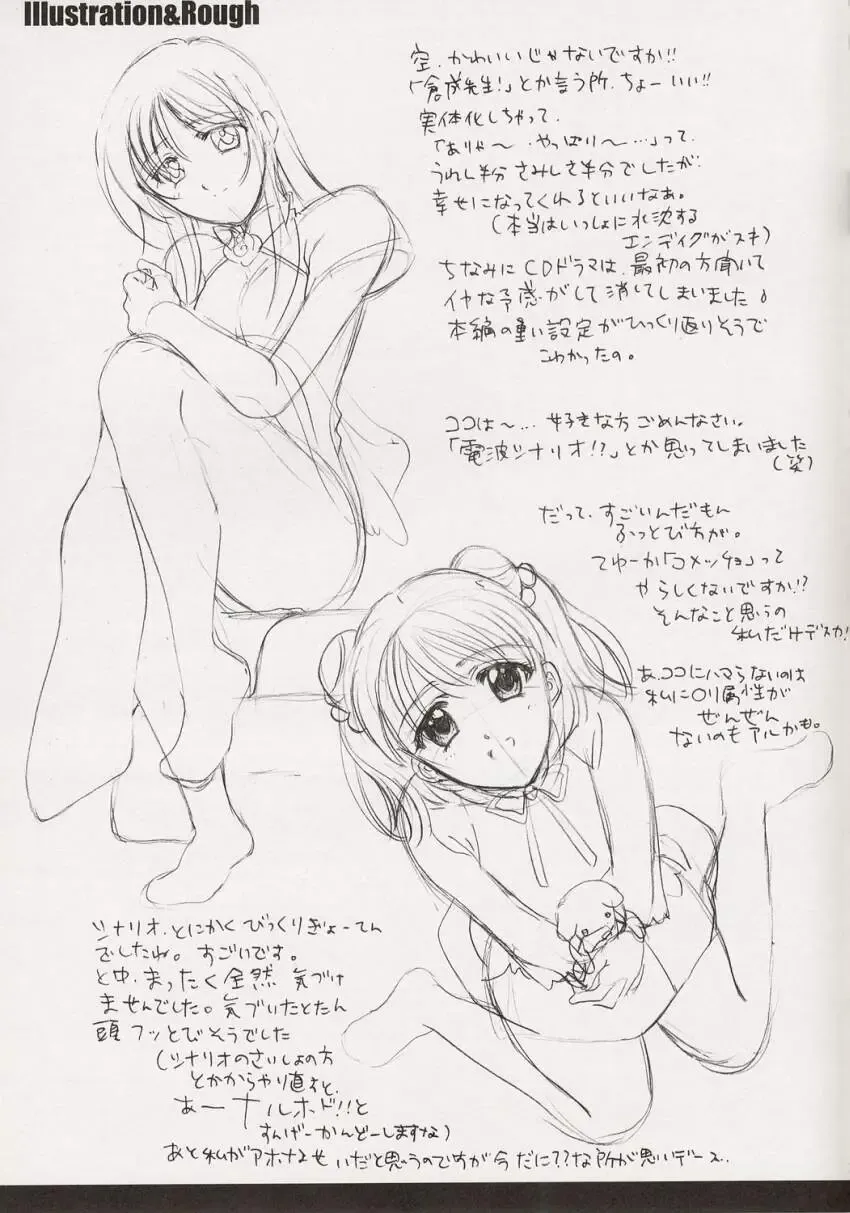 Illustration&Rough
空、かわいいじゃないですか!!
「倉成先生!」とか言う所、ちょーいい!!
実体化しちゃって、
「ありゃ〜、やっぱり〜…」って、
うれし半分 さみしさ半分でしたが、
幸せになってくれるといいなぁ。
(本当はいっしょに水沈する
エンディグがスキ)
ちなみに CDドラマは、最初の方聞いて
イヤな予感がして消してしまいました。
本編の重い設定がひっくり返りそうで
こわかったの。
ココは〜…好きな方 ごめんなさい。
「電波シナリオ!?」とか思ってしまいました
(笑)
だって、すごいんだもん
ふっとび方が。
てゆーか「コメッチョ」って
やらしくないですか!?
そんなこと思うの
私だけデスカ!
あ、ココにハマらないのは
私にロリ属性が
ぜんぜん
ないのもアルかも。
シナリオ、とにかく びっくりぎょーてん
でしたね。すごいです。
と中、まったく全然 気づけ
ませんでした。気づいたとたん
頭 フッとびそうでした
(シナリオのさいしょの方
とかからやり直すと、
あーナルホド!!と
すんげーかんどーしますな)
あと私がアホなせいだと思うのですが今だに??な所が